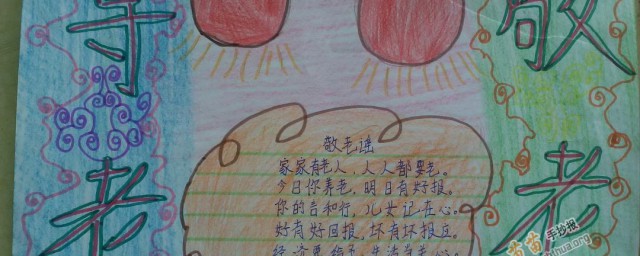 孝老
敬老
敬老谣
家家有老人，人人都要老。
今日你养老，明日有好报。
你的言和行，儿女记在心。
好有好回报，坏有坏报应。
手抄报